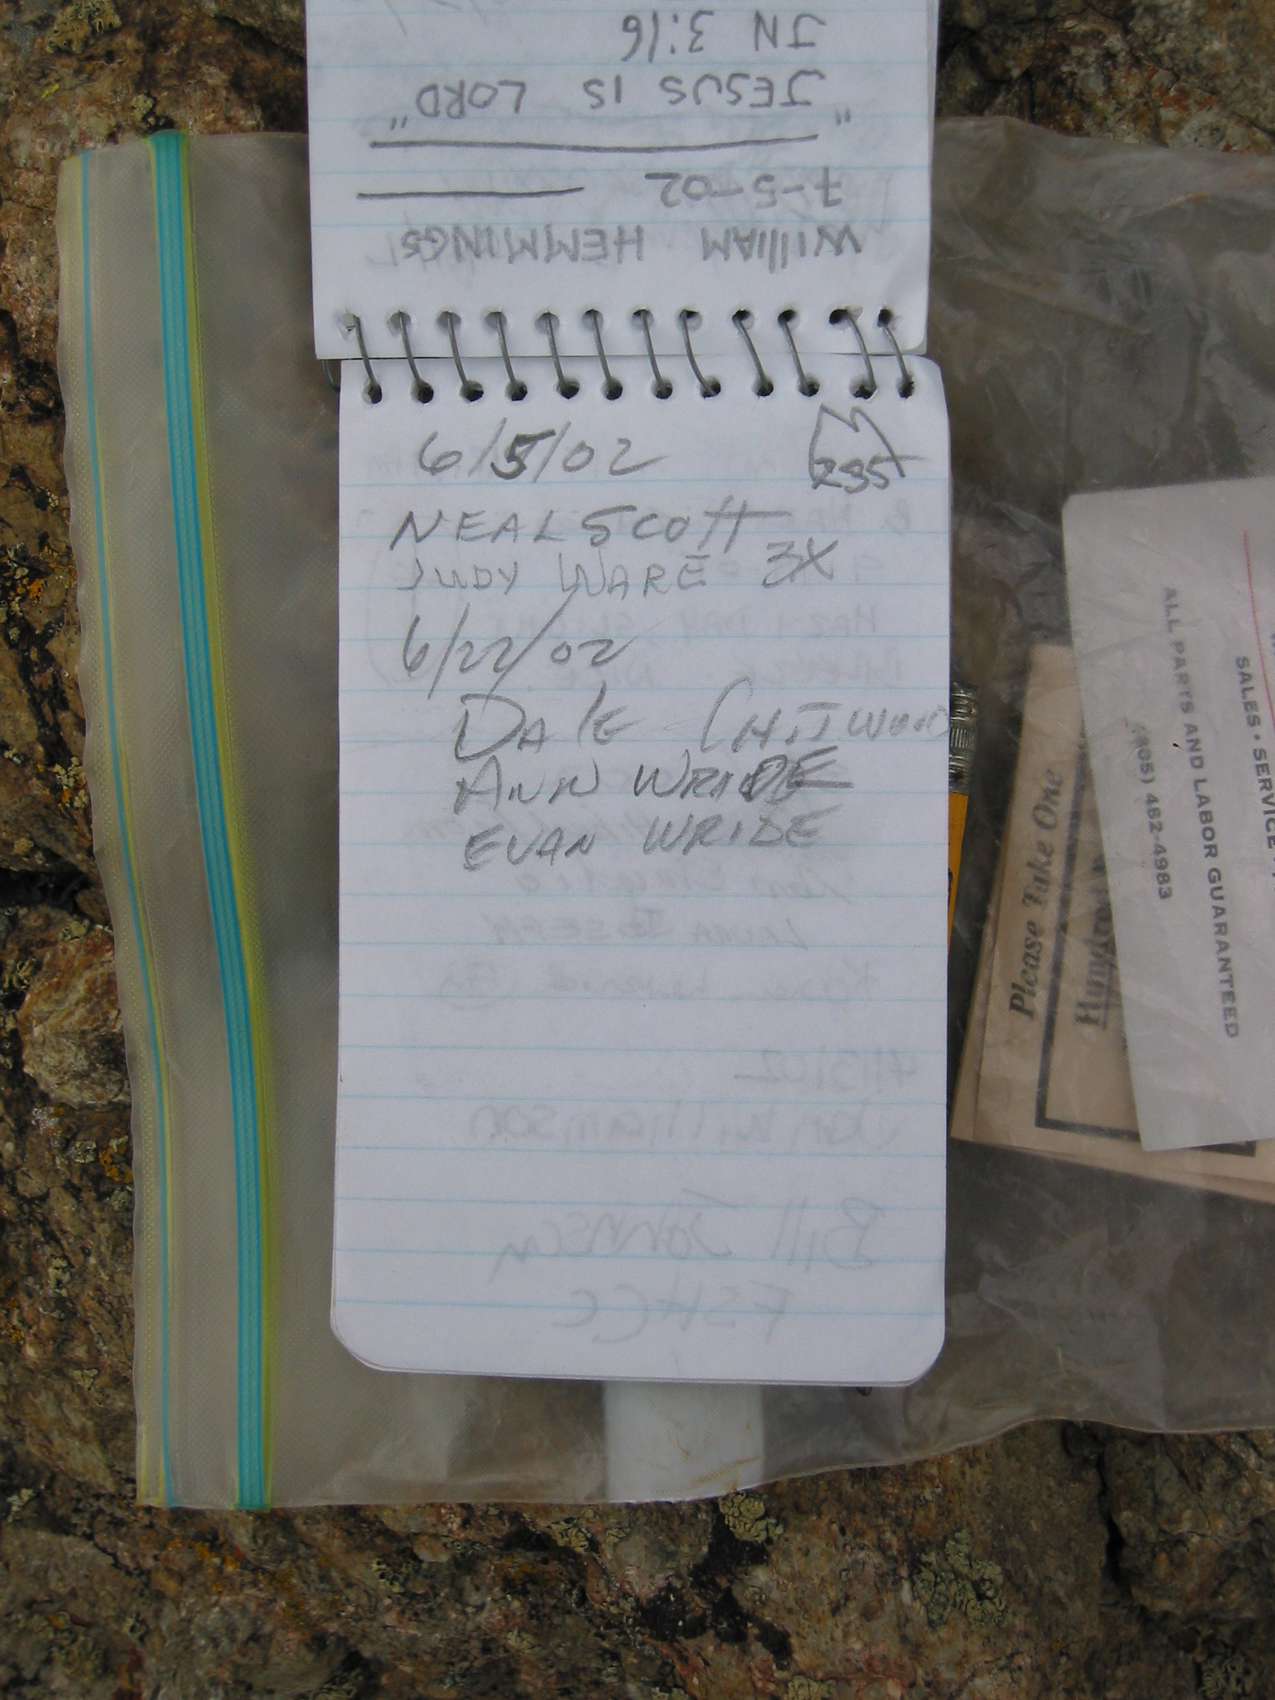 WILLIAM HEMMINGS
7-5-02
"JESUS IS LORD"
JN 3:16
6/5/02
295
NEAL SCOTT
JUDY WARE 3X
6/22/02
DALE CHITWOOD
ANN WRIDE
EVAN WRIDE
4/13/02
Jon Williamson
Bill
LAURA JOSEPH
Please Take One
SALES • SERVICE
ALL PARTS AND LABOR GUARANTEED
(805) 482-4983